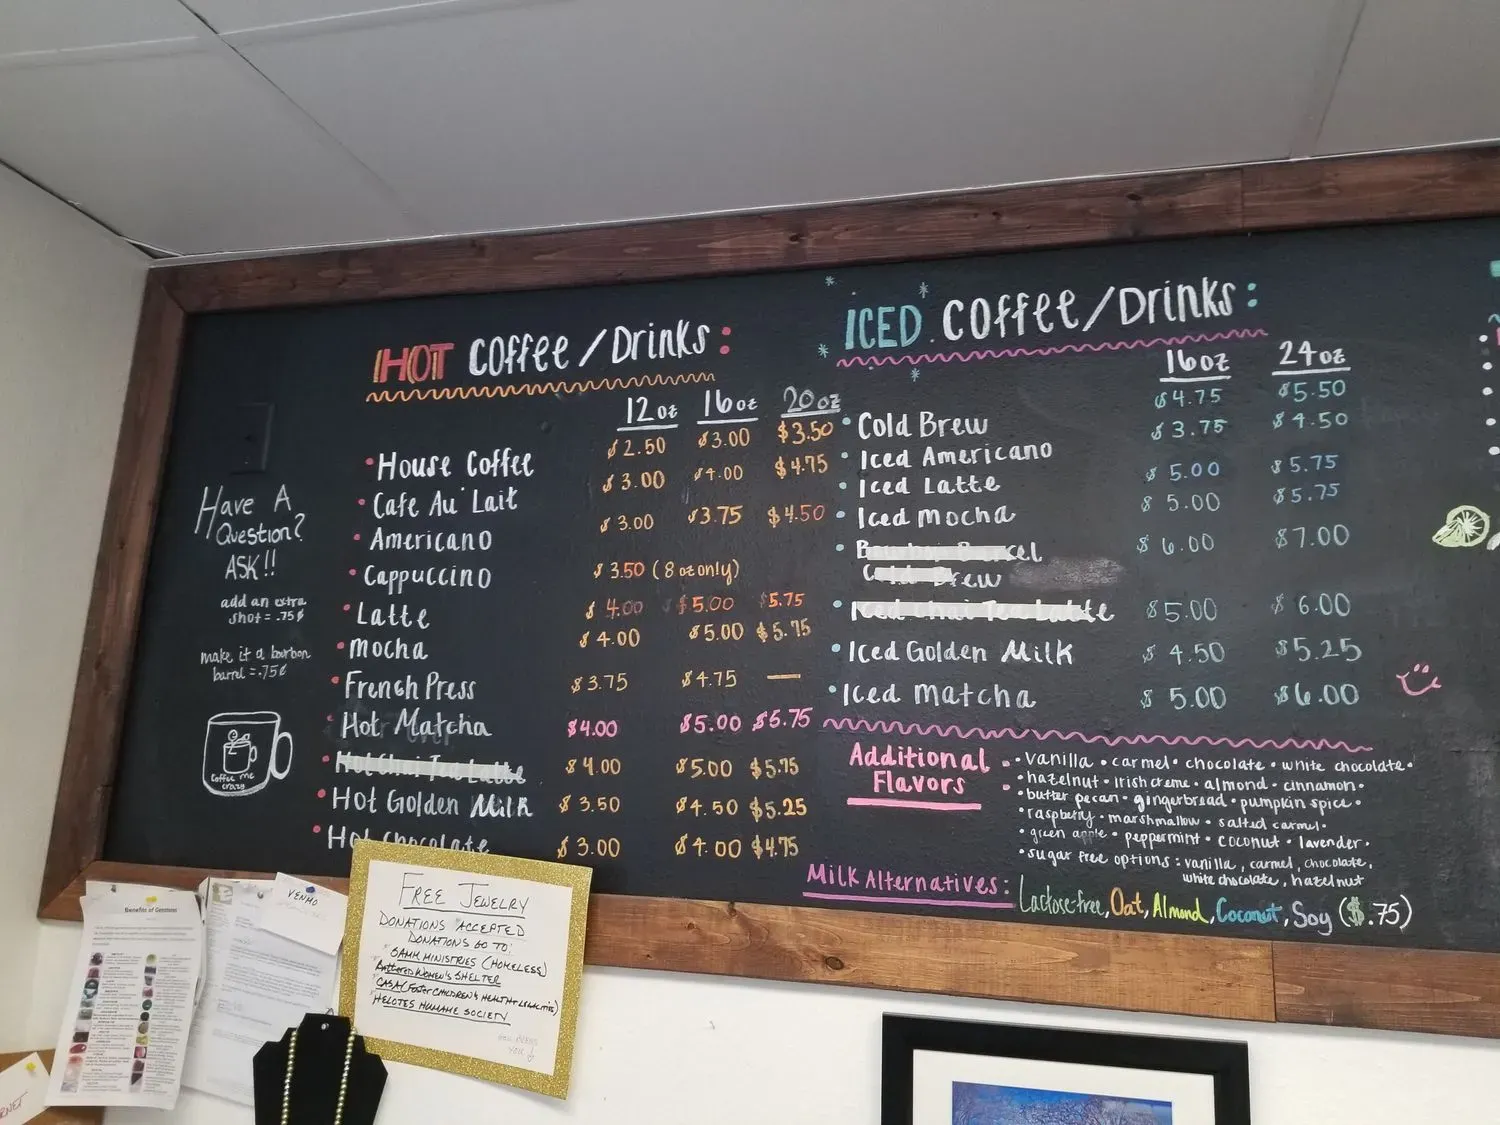 HOT Coffee/Drinks:
12oz 16oz 20oz
• House Coffee $2.50 $3.00 $3.50
• Cafe Au Lait $3.00 $4.00 $4.75
• Americano $3.00 $3.75 $4.50
• Cappuccino $3.50 (8oz only)
• Latte $4.00 $5.00 $5.75
• Mocha $4.00 $5.00 $5.75
• French Press $3.75 $4.75 —
• Hot Matcha $4.00 $5.00 $5.75
• Hot Chai Tea Latte $4.00 $5.00 $5.75
• Hot Golden Milk $3.50 $4.50 $5.25
• Hot Chocolate $3.00 $4.00 $4.75
Have A
Question?
ASK!!
add an extra
shot = .75¢
make it a bourbon
barrel = .75¢
coffee me
crazy
ICED Coffee/Drinks:
16oz 24oz
• Cold Brew $4.75 $5.50
• Iced Americano $3.75 $4.50
• Iced Latte $5.00 $5.75
• Iced Mocha $5.00 $5.75
• Bourbon Barrel
Cold Brew $6.00 $7.00
• Iced Chai Tea Latte $5.00 $6.00
• Iced Golden Milk $4.50 $5.25
• Iced Matcha $5.00 $6.00
Additional
Flavors
• vanilla • carmel • chocolate • white chocolate •
• hazelnut • irish creme • almond • cinnamon •
• butter pecan • gingerbread • pumpkin spice •
• raspberry • marshmallow • salted carmel •
• green apple • peppermint • coconut • lavender •
• sugar free options: vanilla, carmel, chocolate,
white chocolate, hazelnut
Milk Alternatives: Lactose-free, Oat, Almond, Coconut, Soy ($.75)
Benefits of Gemstones
VENMO
FREE JEWELRY
DONATIONS "ACCEPTED
DONATIONS GO TO:
SAMM MINISTRIES (HOMELESS)
Battered WOMEN'S SHELTER
CASA (FOSTER CHILDREN'S HEALTH & LEGALITIES)
HELOTES HUMANE SOCIETY
YOU